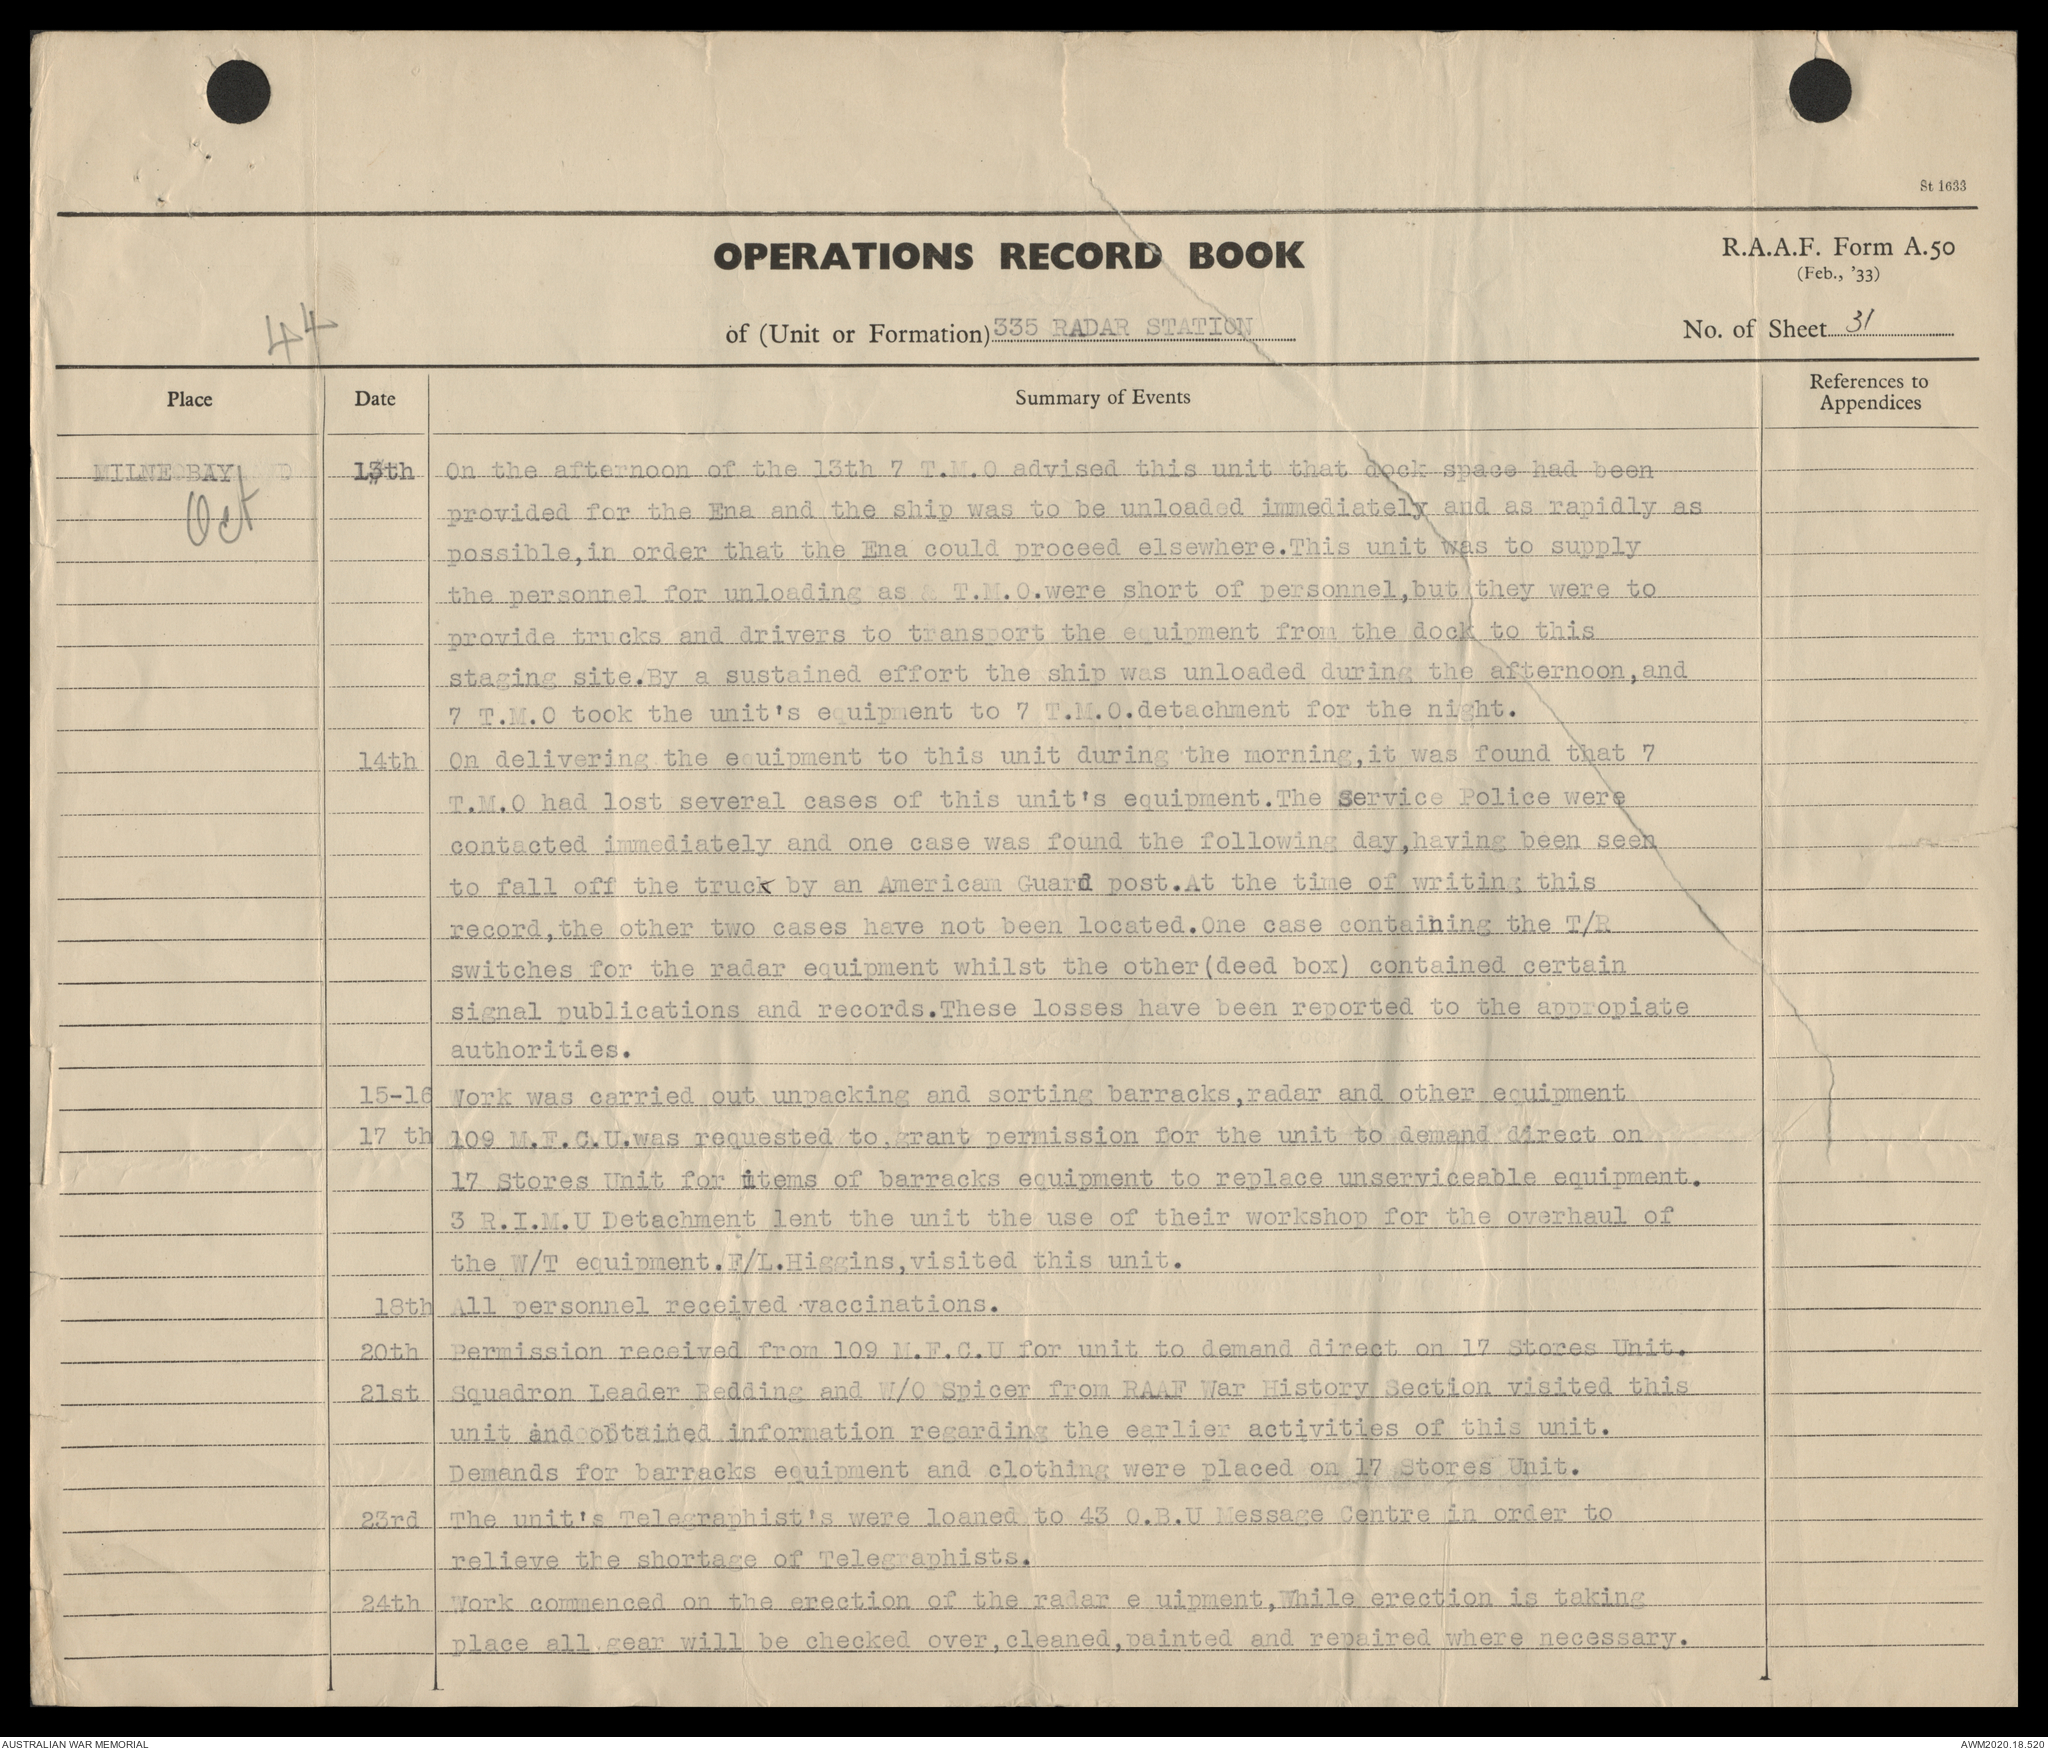 St 1633
OPERATIONS RECORD BOOK
R.A.A.F. Form A.50
(Feb., '33)
44
of (Unit or Formation) 335 RADAR STATION
No. of Sheet 31
Place Date Summary of Events References to Appendices
MILNE BAY 13th On the afternoon of the 13th 7 T.M.O advised this unit that dock space had been
Oct provided for the Ena and the ship was to be unloaded immediately and as rapidly as
possible,in order that the Ena could proceed elsewhere.This unit was to supply
the personnel for unloading as & T.M.O.were short of personnel,but they were to
provide trucks and drivers to transport the equipment from the dock to this
staging site.By a sustained effort the ship was unloaded during the afternoon,and
7 T.M.O took the unit's equipment to 7 T.M.O.detachment for the night.
14th On delivering the equipment to this unit during the morning,it was found that 7
T.M.O had lost several cases of this unit's equipment.The Service Police were
contacted immediately and one case was found the following day,having been seen
to fall off the truck by an Americam Guard post.At the time of writing this
record,the other two cases have not been located.One case containing the T/R
switches for the radar equipment whilst the other(deed box) contained certain
signal publications and records.These losses have been reported to the appropiate
authorities.
15-16 Work was carried out unpacking and sorting barracks,radar and other equipment
17 th 109 M.F.C.U.was requested to grant permission for the unit to demand direct on
17 Stores Unit for items of barracks equipment to replace unserviceable equipment.
3 R.I.M.U Detachment lent the unit the use of their workshop for the overhaul of
the W/T equipment.F/L.Higgins,visited this unit.
18th All personnel received vaccinations.
20th Permission received from 109 M.F.C.U for unit to demand direct on 17 Stores Unit.
21st Squadron Leader Redding and W/O Spicer from RAAF War History Section visited this
unit and obtained information regarding the earlier activities of this unit.
Demands for barracks equipment and clothing were placed on 17 Stores Unit.
23rd The unit's Telegraphist's were loaned to 43 O.B.U Message Centre in order to
relieve the shortage of Telegraphists.
24th Work commenced on the erection of the radar equipment,While erection is taking
place all gear will be checked over,cleaned,painted and repaired where necessary.
AUSTRALIAN WAR MEMORIAL
AWM2020.18.520